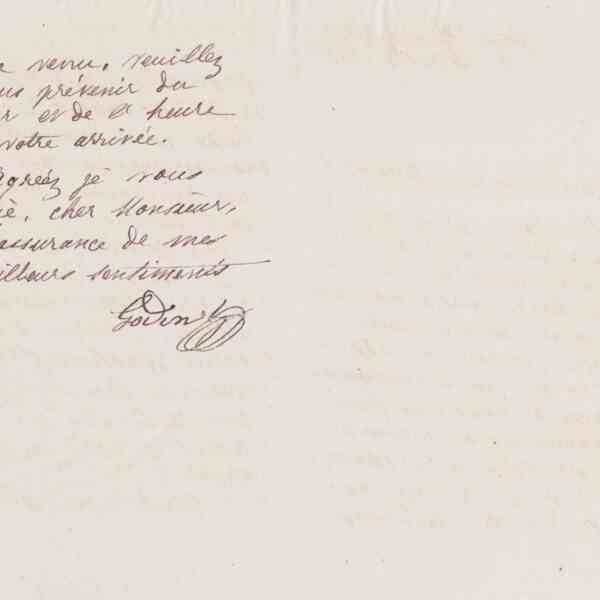 venu, veuillez
us prévenir du
r et de l'heure
votre arrivée.
Agréez je vous
è, cher Monsieur,
assurance de mes
illeurs sentiments
Godin